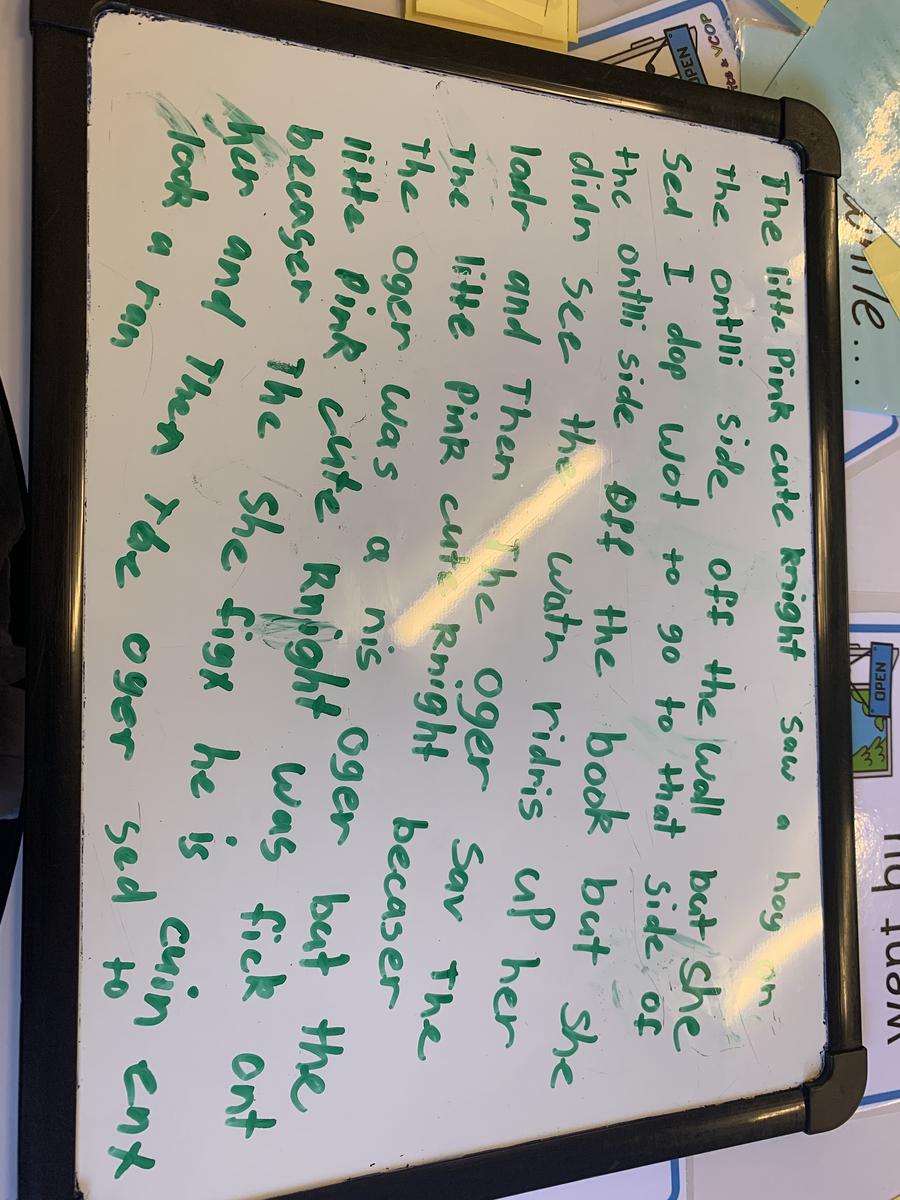 The litte Pink cute knight saw a hoy on
the ontlli side off the wall but she
sed I dop wot to go to that side of
the ontlli side off the book but she
didn see the watn ridris up her
ladr and Then The oger sav The
The litte Pink cute knight becaser
The oger was a nis oger but the
litte pink cute knight was fick ont
becaser The she figx he is cuin enx
her and Then the oger sed to
look a ran
OPEN
& VCOP
OPEN
want